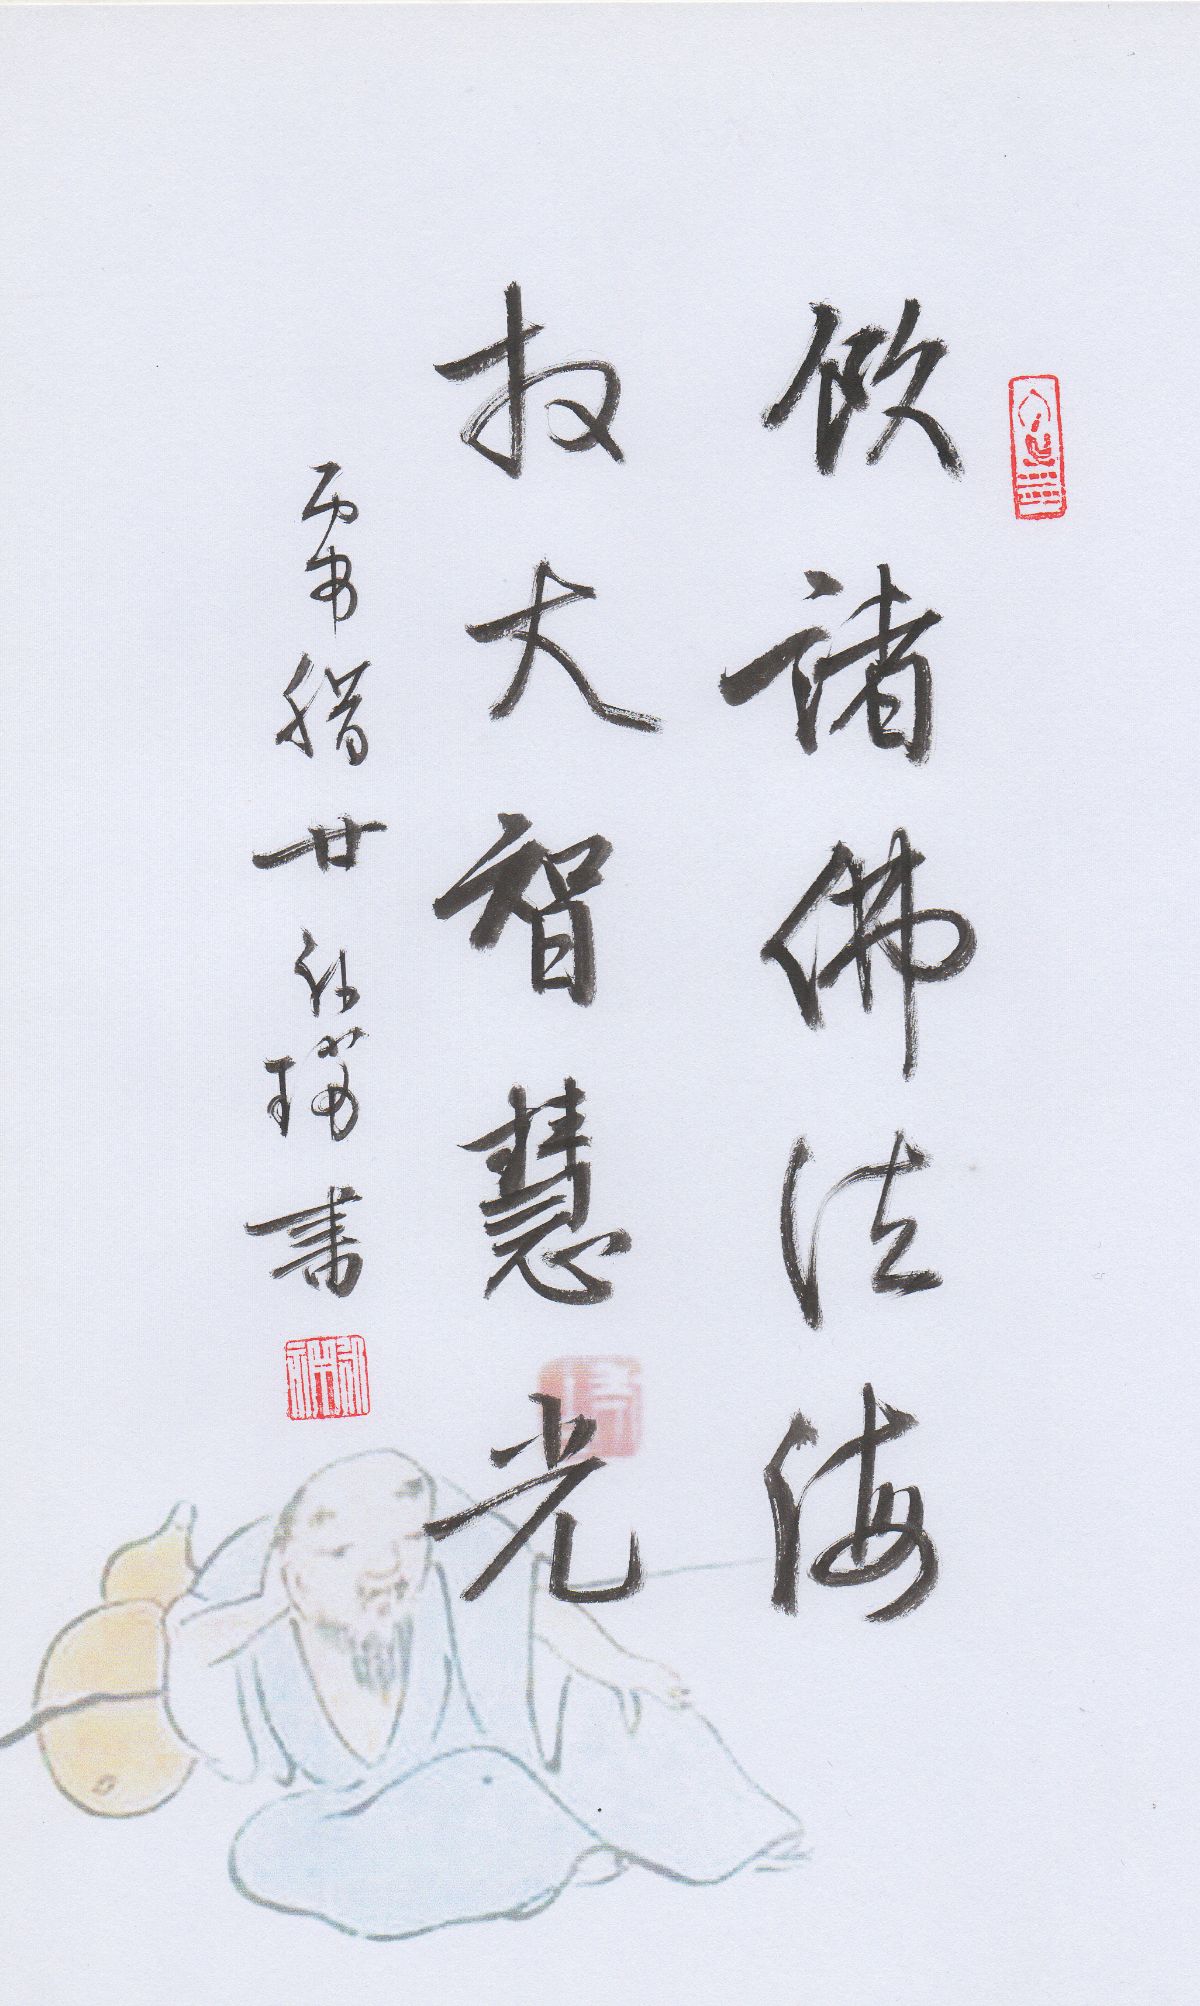 飲諸佛法海
放大智慧光
丙申腊廿書